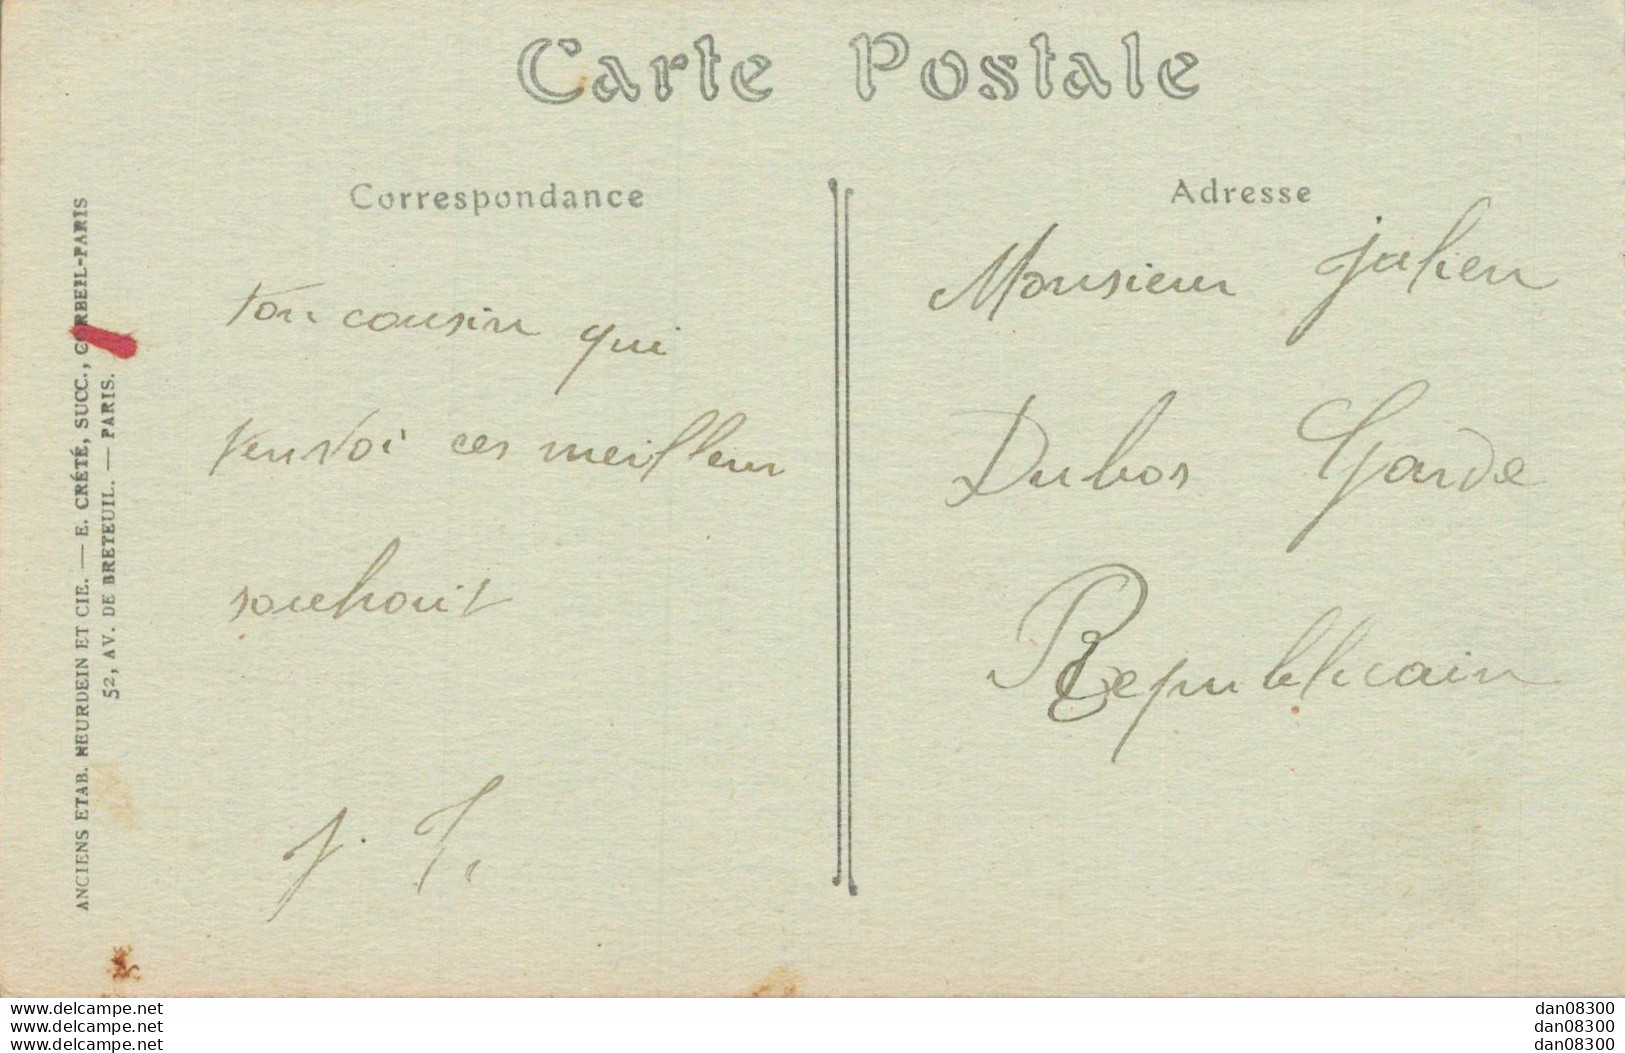 Carte Postale
Correspondance
ton cousin qui
t'envoi ces meilleur
souhait
J. T.
Adresse
Monsieur Julien
Dubos Garde
Republicain
ANCIENS ETAB. NEURDEIN ET CIE. — E. CRÉTÉ, SUCC., CORBEIL-PARIS
52, AV. DE BRETEUIL. — PARIS.
www.delcampe.net
www.delcampe.net
www.delcampe.net
dan08300
dan08300
dan08300